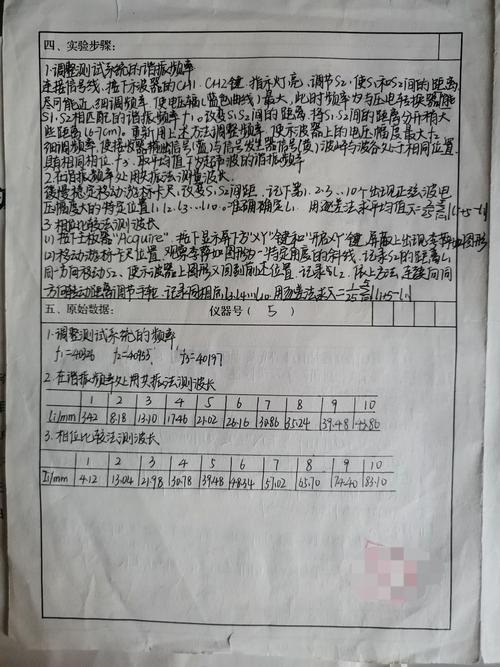 四、实验步骤:
1.调整测试系统的谐振频率
连接信号线,按下示波器的CH1、CH2键,指示灯亮,调节S2,使S1和S2间的距离
尽可能近,细调频率,使电压幅(蓝色曲线)最大,此时频率为与压电转换器
S1、S2相匹配的谐振频率f1。改变S1S2间的距离,将S1、S2间的距离分开稍大
些距离(6-7cm)。重新用上述方法调整频率,使示波器上的电压幅度最大f2
细调频率,使接收器输出信号(蓝)与信号发生器信号(黄)波峰与波谷处于相同位置,
具有相同相位f3。取平均值下为超声波的谐振频率
2.在谐振频率处用共振法测量波长
缓慢稳定移动游标卡尺,改变S1S2间距,记下第1、2、3…10个出现正弦波电
压幅度大的特定位置l1、l2、l3…l10。准确确定l1。用逐差法求平均值
3.相位比较法测波长
(1)按下主板器"Acquire",按下显示屏下方"XY"键和"开启XY"键,屏蔽上出现李萨如图形
(2)移动游标卡尺位置,观察李萨如图形为一特定角度的斜线,记录S2的距离l1
同一方向移动S2,使示波器上图形又回到前述位置,记录S2 l2。依上方法,连续向同
方向移动距离调节手轮,记录同相启l3、l4…l10 用逐差法求
五、原始数据: 仪器号( 5 )
1.调整测试系统的频率
f1=40326 f2=40953 f3=40197
2.在谐振频率处用共振法测波长
1 2 3 4 5 6 7 8 9 10
Li/mm 3.42 8.18 13.10 17.46 21.02 26.16 30.86 35.24 39.48 43.86
3.相位比较法测波长
1 2 3 4 5 6 7 8 9 10
Li/mm 4.12 13.04 21.98 30.78 39.48 48.34 57.02 65.70 74.40 83.10